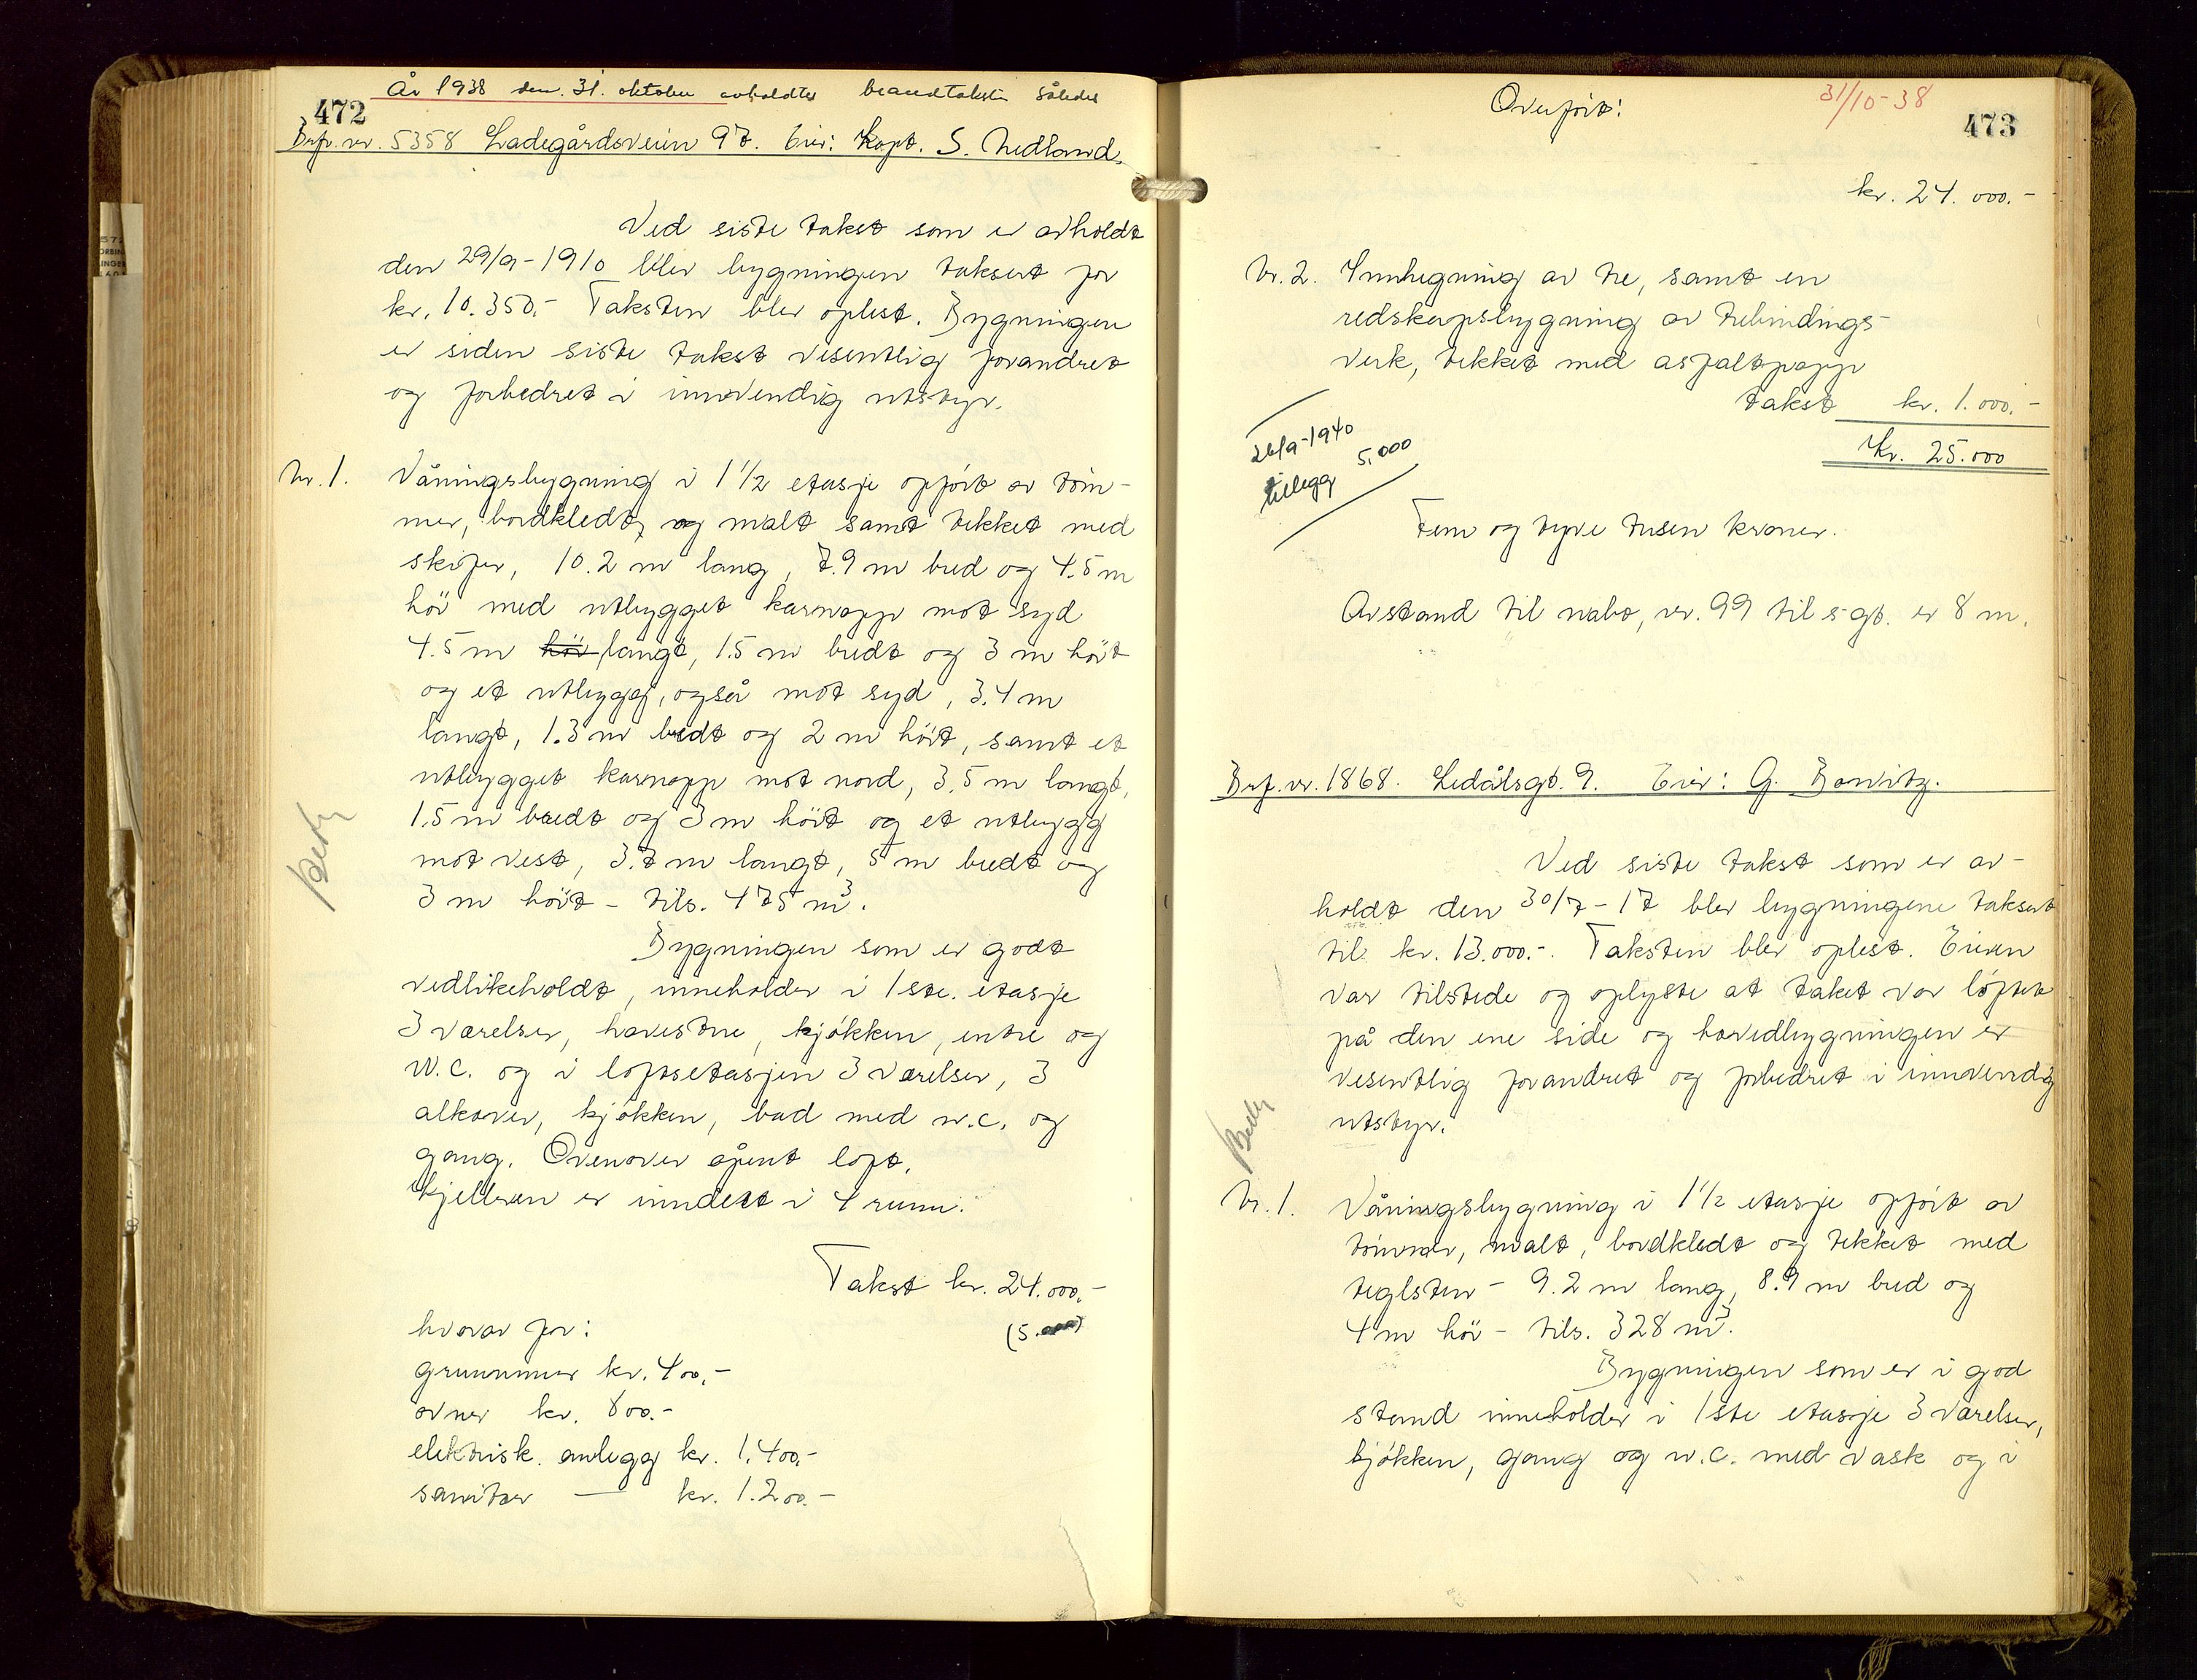 År 1938 den. 31. oktober avholdtes brandtakster således
472
Brf. nr. 5358 Ladegårdsveien 97. Eier: Kapt. S. Nedland.
Ved siste takst som er avholdt
den 29/9-1910 blev bygningen taksert for
kr. 10.350.- Taksten blev oplest. Bygningen
er siden siste takst vesentlig forandret
og forbedret i innvendig utstyr.
Nr. 1. Våningsbygning i 1 1/2 etasje opført av töm-
mer, bordkledt, og malt samt tekket med
skifer, 10.2 m lang, 7.9 m bred og 4.5 m
höi med utbygget karnapp mot syd
4.5 m höi langt, 1.5 m bredt og 3 m höit
og et utbygg, også mot syd, 3.4 m
langt, 1.3 m bredt og 2 m höit, samt et
utbygget karnapp mot nord, 3.5 m langt,
1.5 m bredt og 3 m höit og et utbygg
mot vest, 3.7 m langt, 5 m bredt og
3 m höit - tils. 475 m³.
Bygningen som er godt
vedlikeholdt, inneholder i 1ste. etasje
3 værelser, havestue, kjökken, entre og
W.C. og i loftsetasjen 3 værelser, 3
alkover, kjökken, bad med w.c. og
gang. Ovenover åpent loft.
Kjelleren er inndelt i 4 rum.
Takst kr. 24.000.-
hvorav for:
grunnmur kr. 400.-
ovner kr. 800.-
elektrisk. anlegg kr. 1.400.-
sanitær — kr. 1.200.-
Overført:
31/10-38
473
kr. 24.000.-
Nr. 2. Innhegning av tre, samt en
redskapsbygning av trebindings-
verk, tekket med asfaltpapp
takst kr. 1.000.-
Kr. 25.000
26/9-1940
tillegg 5.000
Fem og tyve tusen kroner.
Avstand til nabo, nr. 99 til s gt. er 8 m.
Brf. nr. 1868. Ledålsgt. 9. Eier: G. Bowitz.
Ved siste takst som er av-
holdt den 30/7-17 blev bygningene taksert
til kr. 13.000.-. Taksten blev oplest. Eieren
var tilstede og oplyste at taket var löftet
på den ene side og hovedbygningen er
vesentlig forandret og forbedret i innvendig
utstyr.
Nr. 1. Våningsbygning i 1 1/2 etasje opfört av
tömmer, malt, bordkledt og tekket med
teglsten - 9.2 m lang, 8.9 m bred og
4 m höi - tils. 328 m³.
Bygningen som er i god
stand inneholder i 1ste etasje 3 værelser,
kjökken, gang og w.c. med vask og i